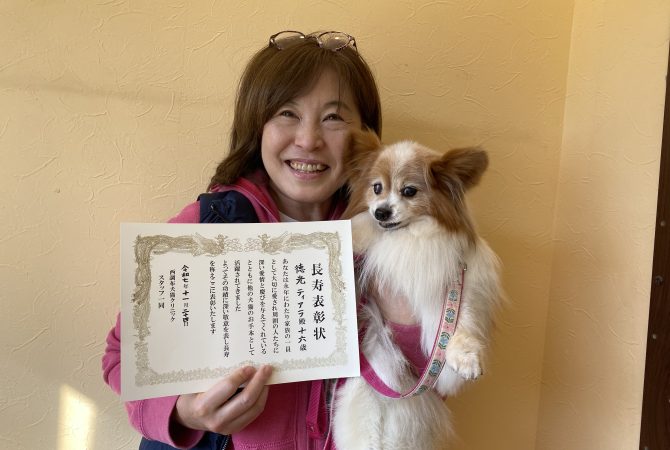 長寿表彰状
徳光 ティアラ殿 十六歳
あなたは永年にわたり家族の一員
として大切に愛され周囲の人たちに
深い愛情と慶びを与えてくれている
とともに他の犬猫のお手本として
活躍されてきました
よってその功績に深い敬意を表し長寿
を称えここに表彰いたします
令和七年十一月二十四日
西調布犬猫クリニック
スタッフ一同